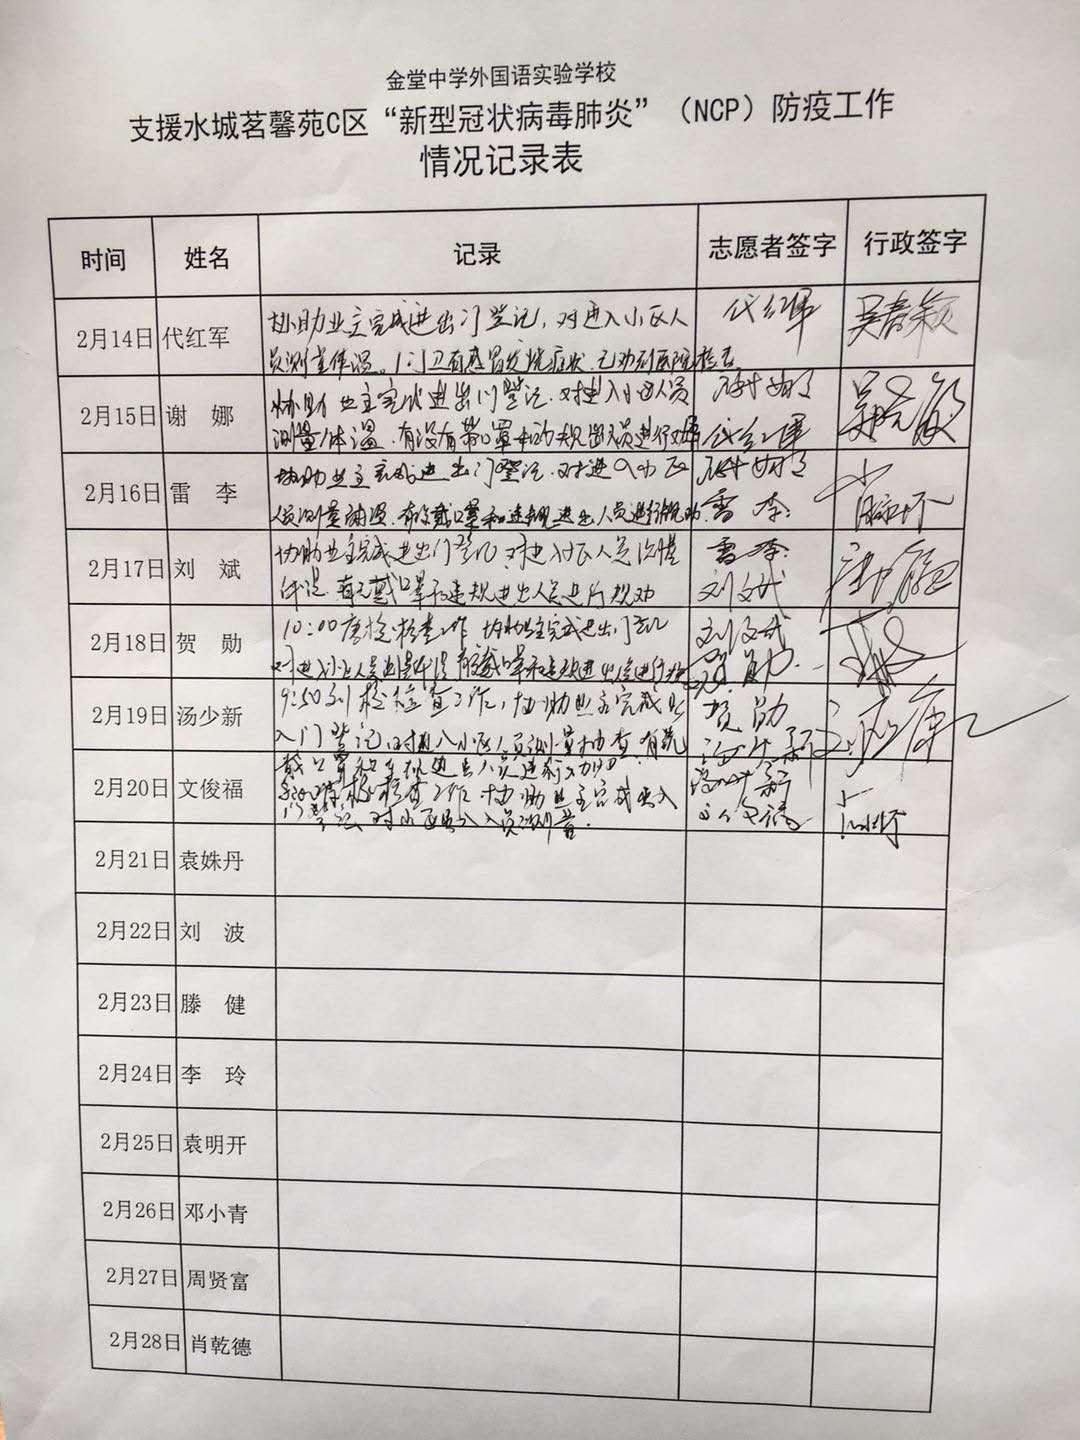 金堂中学外国语实验学校
支援水城茗馨苑C区“新型冠状病毒肺炎”（NCP）防疫工作
情况记录表
时间 姓名 记录 志愿者签字 行政签字
2月14日 代红军 协助业主完成进出门登记，对进入小区人 代红军
员测量体温。1门卫有感冒发烧症状，已劝到医院检查。
2月15日 谢 娜 协助业主完成进出门登记，对进入小区人员 谢娜
测量体温，有没有带口罩和 规出人员进行 代红军
2月16日 雷 李 协助业主完成进出门登记，对进入小区 谢娜
人员测量体温，有没戴口罩和违规进出人员进行规劝 雷李
2月17日 刘 斌 协助业主完成进出门登记，对进入小区人员 雷李
体温，有无戴口罩和违规进出人员进行规劝 刘斌
2月18日 贺 勋 10:00 检查工作，协助业主完成进出门登记 刘斌
对进入小区人员测量体温 有没戴口罩和违规进出人员进行 贺勋
2月19日 汤少新 9:50到 检查工作，协助业主完成出 贺勋
入门登记，对进入小区人员测量抽查，有无 汤少新
戴口罩和 进出人员进行劝
2月20日 文俊福 检查工作 协助业主完成出入 汤少新
门登记，对小区出入人员测 文俊福
2月21日 袁姝丹
2月22日 刘 波
2月23日 滕 健
2月24日 李 玲
2月25日 袁明开
2月26日 邓小青
2月27日 周贤富
2月28日 肖乾德